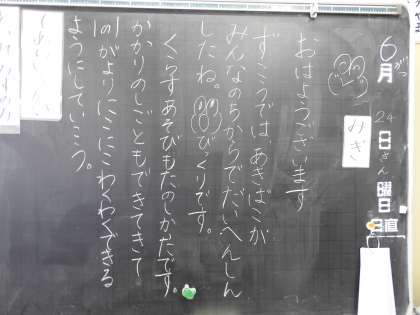 6月
がつ
24
日
さん
曜日
日直
みぎ
おはようございます
ずこうでは、あきばこが
みんなのちからでだいへんしん
したね。びっくりです。
くらすあそびもたのしかたです。
かかりのしごともできてきて
1の1がよりにこにこわくわくできる
ようにしていこう。